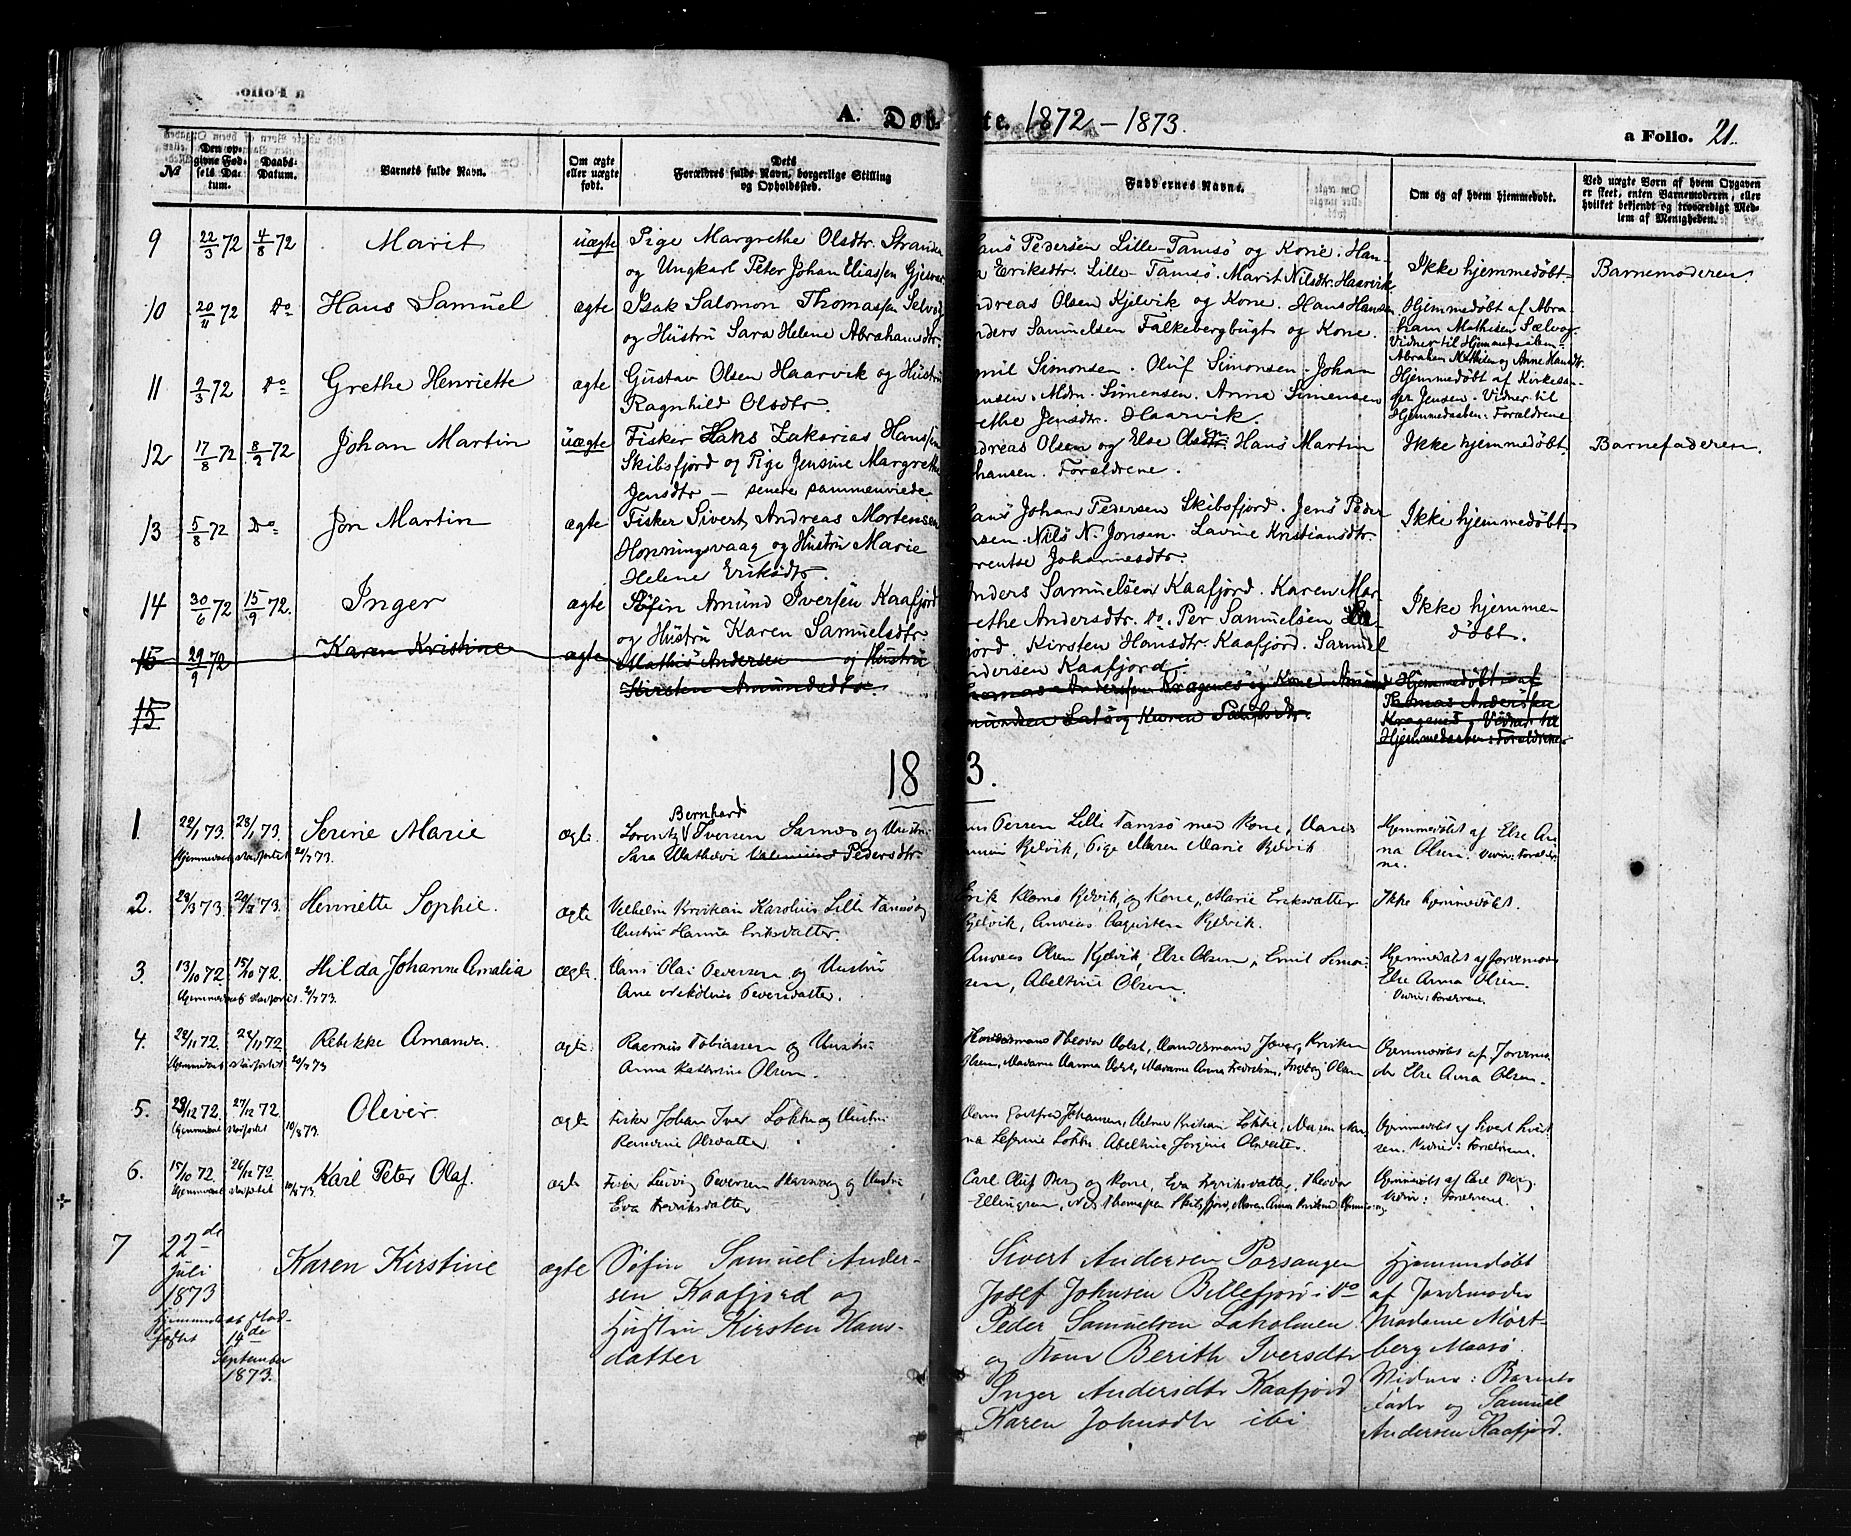 A. Døb te. 1872 - 1873.
a Folio. 21.
№
Den op-
givne Fød-
sels Da-
tum.
Daabs-
Datum.
Barnets fulde Navn.
Om ægte
eller uægte
født.
Dets
Forældres fulde Navn, borgerlige Stilling
og Opholdssted.
Faddernes Navne.
Om og af hvem hjemmedøbt.
Ved uægte Børn af hvem Opgaven
er skeet, enten Barnemoderen, eller
hvilket bekjendt og troværdigt Med-
lem af Menigheden.
9 22/3 72 4/8 72 Marit uægte Pige Margrethe Olsdtr. Strande
og Ungkarl Peter Johan Eliassen Gjesvær
ans Pedersen Lille-Tamsø og Kone. Han-
a Eriksdtr. Lille-Tamsø. Marit Nilsdtr. Haarvik
Ikke hjemmedøbt. Barnemoderen.
10 20/11 72 Do Hans Samuel ægte Isak Salomon Thomassen Selvog
og Hustru Sara Helene Abrahamsdtr.
ndreas Olsen Kjelvik og Kone. Hans Hansen
nders Samuelsen Falkebergbugt og Kone.
Hjemmedøbt af Abra-
ham Mathisen Sælvog.
Vidner til Hjemmedaaben-
Abraham Mathisen og Anne Hansdtr.
11 2/3 72 Do Grethe Henriette ægte Gustav Olsen Haarvik og Hustru
Ragnhild Olsdtr.
mil Simonsen. Oluf Simonsen. Johan
nsen. Mdn. Simensen. Anna Simensen
ethe Jensdtr. Haarvik.
Hjemmedøbt af Kirkesan-
ger Jensen. Vidner til
Hjemmedaaben: Forældrene
12 17/8 72 8/9 72 Johan Martin uægte Fisker Hans Zakarias Hanssen
Skibsfjord og Pige Jensine Margrethe
Jensdtr - senere sammenviede
ndreas Olsen og Else Olsdtr. Hans Martin
hansen. Forældrene.
Ikke hjemmedøbt. Barnefaderen.
13 5/8 72 Do Jon Martin ægte Fisker Sivert Andreas Mortensen
Honningsvaag og Hustru Marie
Helene Eriksdtr.
ans Johan Pedersen Skibsfjord. Jens Peder
rsen. Nils N. Jonsen. Lavine Kristiansdtr.
orentse Johannesdtr.
Ikke hjemmedøbt.
14 30/6 72 15/9 72. Inger ægte Søfin Amund Iversen Kaafjord
og Hustru Karen Samuelsdtr
nders Samuelsen Kaafjord. Karen Mar
rethe Andersdtr. do. Per Samuelsen
jord. Kirsten Hansdtr. Kaafjord. Samuel
ndersen Kaafjord.
Ikke hjemme-
døbt.
15 29/9 72 Karen Kristine ægte Mathis Andersen og Hustru
Kirsten Amundsdtr.
homas Andersen Kragenes og Kone Amund
mundsen Latø og Karen
Hjemmedøbt af
Thomas Andersen
Kragenes, Vidner til
Hjemmedaaben: Forældrene
15
18 3.
1 22/1 73. 28/1 73. Serine Marie ægte. Lorentz Bernhard Iversen Sarnæs og Hustru
Hjemmedøbt Stadfæstet 2/7 73. Sara Mathilde Pedersdtr
ns Persen Lille Tamsø med Kone, Hans
Kjelvik, Pige Maren Marie Kjelvik
Hjemmedøbt af Else An-
na Olsen. Vidn: Foreldre-
ne.
2. 23/3 73. 20/7 73. Henriette Sophie. ægte Vilhelm Kristian Karolius Lille Tamsø og
Hustru Hanna Eriksdatter.
Erik Kloms Kjelvik, og Kone, Marie Eriksdatter
Kjelvik, Andreas Augustsen Kjelvik.
Ikke hjemmedøbt.
3. 13/10 72. 15/10 72. Hilda Johanne Amalia ægte. Hans Olai Peversen og Hustru
Hjemmedøbt Stadfæstet. 2/7 73. Ane Peversdatter.
Andreas Olsen Kjelvik, Else Olsen, Emil Simon-
sen, Abeltine Olsen.
Hjemmedøbt af Jordemoder
Else Anna Olsen.
Vidn: Foreldrene.
4. 22/11 72. 24/11 72. Rebekke Amanda. ægte. Rasmus Tobiassen og Hustru
Hjemmedøbt Stadfæstet 20/7 73 Anna Katherine Olsen.
Handelsmand Theodor Holst, Handelsmand Jover, Kristen
Olsen, Madame Hanna Holst, Madame Anna Fredriksen, Ingeborg Olsen
Hjemmedøbt af Jordemo-
der Else Anna Olsen.
5. 23/12 72. 27/12 72. Oliver ægte Fisker Johan Iver Løkke og Hustru
Hjemmedøbt Stadfæstet 10/8 73. Olsdatter
Hans Gotfred Johansen, Kristian Løkke, Maren An-
na Løkke, Abeltine Jørgine Olsdatter.
Hjemmedøbt af Sivert Sivert-
sen. Vidner: Foreldrene.
6. 15/10 72. 26/12 72 Karl Peter Olaf. ægte Fisker Ludvig Peversen og Hustru
Hjemmedøbt Stadfæstet 10/8 73. Eva Fredriksdatter
Carl Oluf Berg og Kone, Eva Fredriksdatter, Theodor
Ellingsen, Nils Thomassen Skibsfjord, Maren Anna
Hjemmedøbt af Carl Berg.
Vidn: Foreldrene.
7 22de
Juli
1873
Hjemmedøbt Stad-
fæstet 14de
September
1873.
Karen Kirstine ægte Søfin Samuel Ander-
sen Kaafjord og
Hustru Kirsten Hans-
datter
Sivert Andersen Porsangen
Josef Johnsen Billefjord i do
Peder Samuelsen Laholmen
og Kone Berith Iversdtr
Inger Andersdtr Kaafjord
Karen Johnsdtr ibi
Hjemmedøbt
af Jordemoder
Madame Mort-
berg Maasø.
Vidner: Barnets
Fader og Samuel
Andersen Kaafjord.